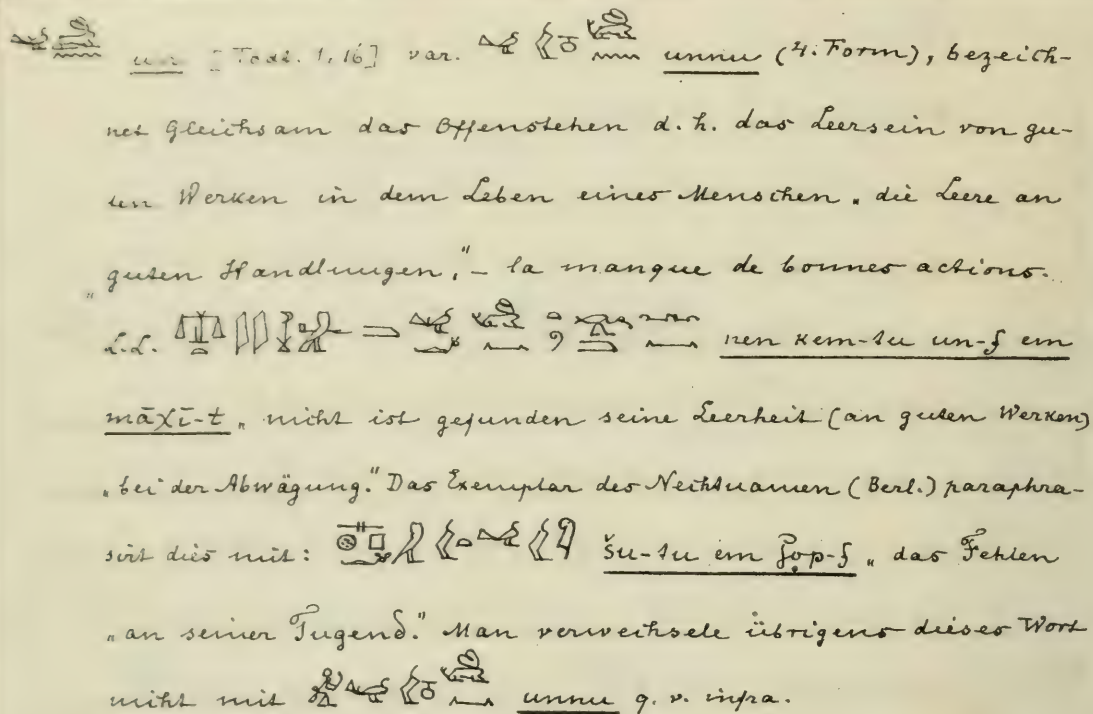 un [Todt. 1, 16] var. unnu (4. Form), bezeich-
net gleichsam das Offenstehen d. h. das Leersein von gu-
ten Werken in dem Leben eines Menschen „die Leere an
„guten Handlungen,“ – la manque de bonnes actions.
L.L. nen kem-tu un-f em
māχī-t „nicht ist gefunden seine Leerheit (an guten Werken)
„bei der Abwägung.“ Das Exemplar des Nechtuamen (Berl.) paraphra-
sirt dies mit: šu-tu em „das Fehlen
„an seiner Tugend.“ Man verwechsele übrigens dieses Wort
nicht mit unnu q. v. infra.